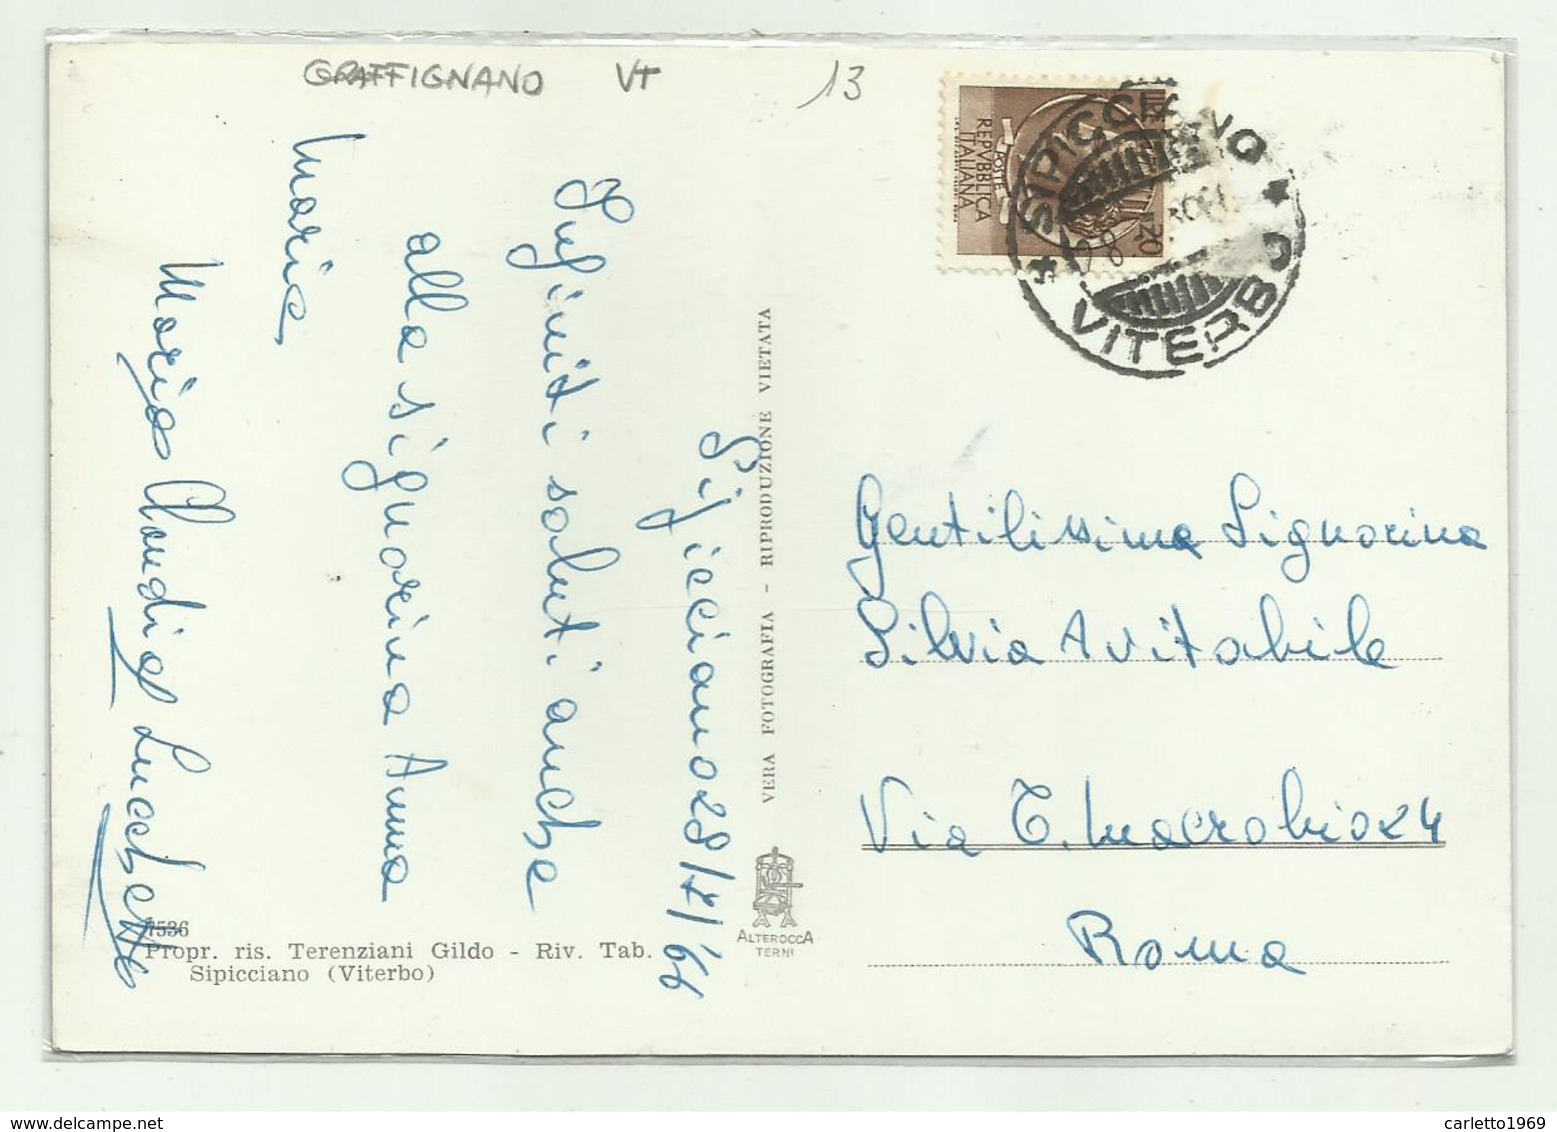 GRAFFIGNANO VT 13
Sipicciano 28/7/66
Infiniti saluti anche
alla signorina Anna
Maria
Maria Claudia Lucchetti
7536
Propr. ris. Terenziani Gildo - Riv. Tab.
Sipicciano (Viterbo)
VERA FOTOGRAFIA - RIPRODUZIONE VIETATA
ALTEROCCA
TERNI
REPVBBLICA
ITALIANA
POSTE
L. 20
SIPICCIANO
VITERBO
Gentilissima Signorina
Silvia Avitabile
Via T. Macrobio 24
Roma
carletto1969